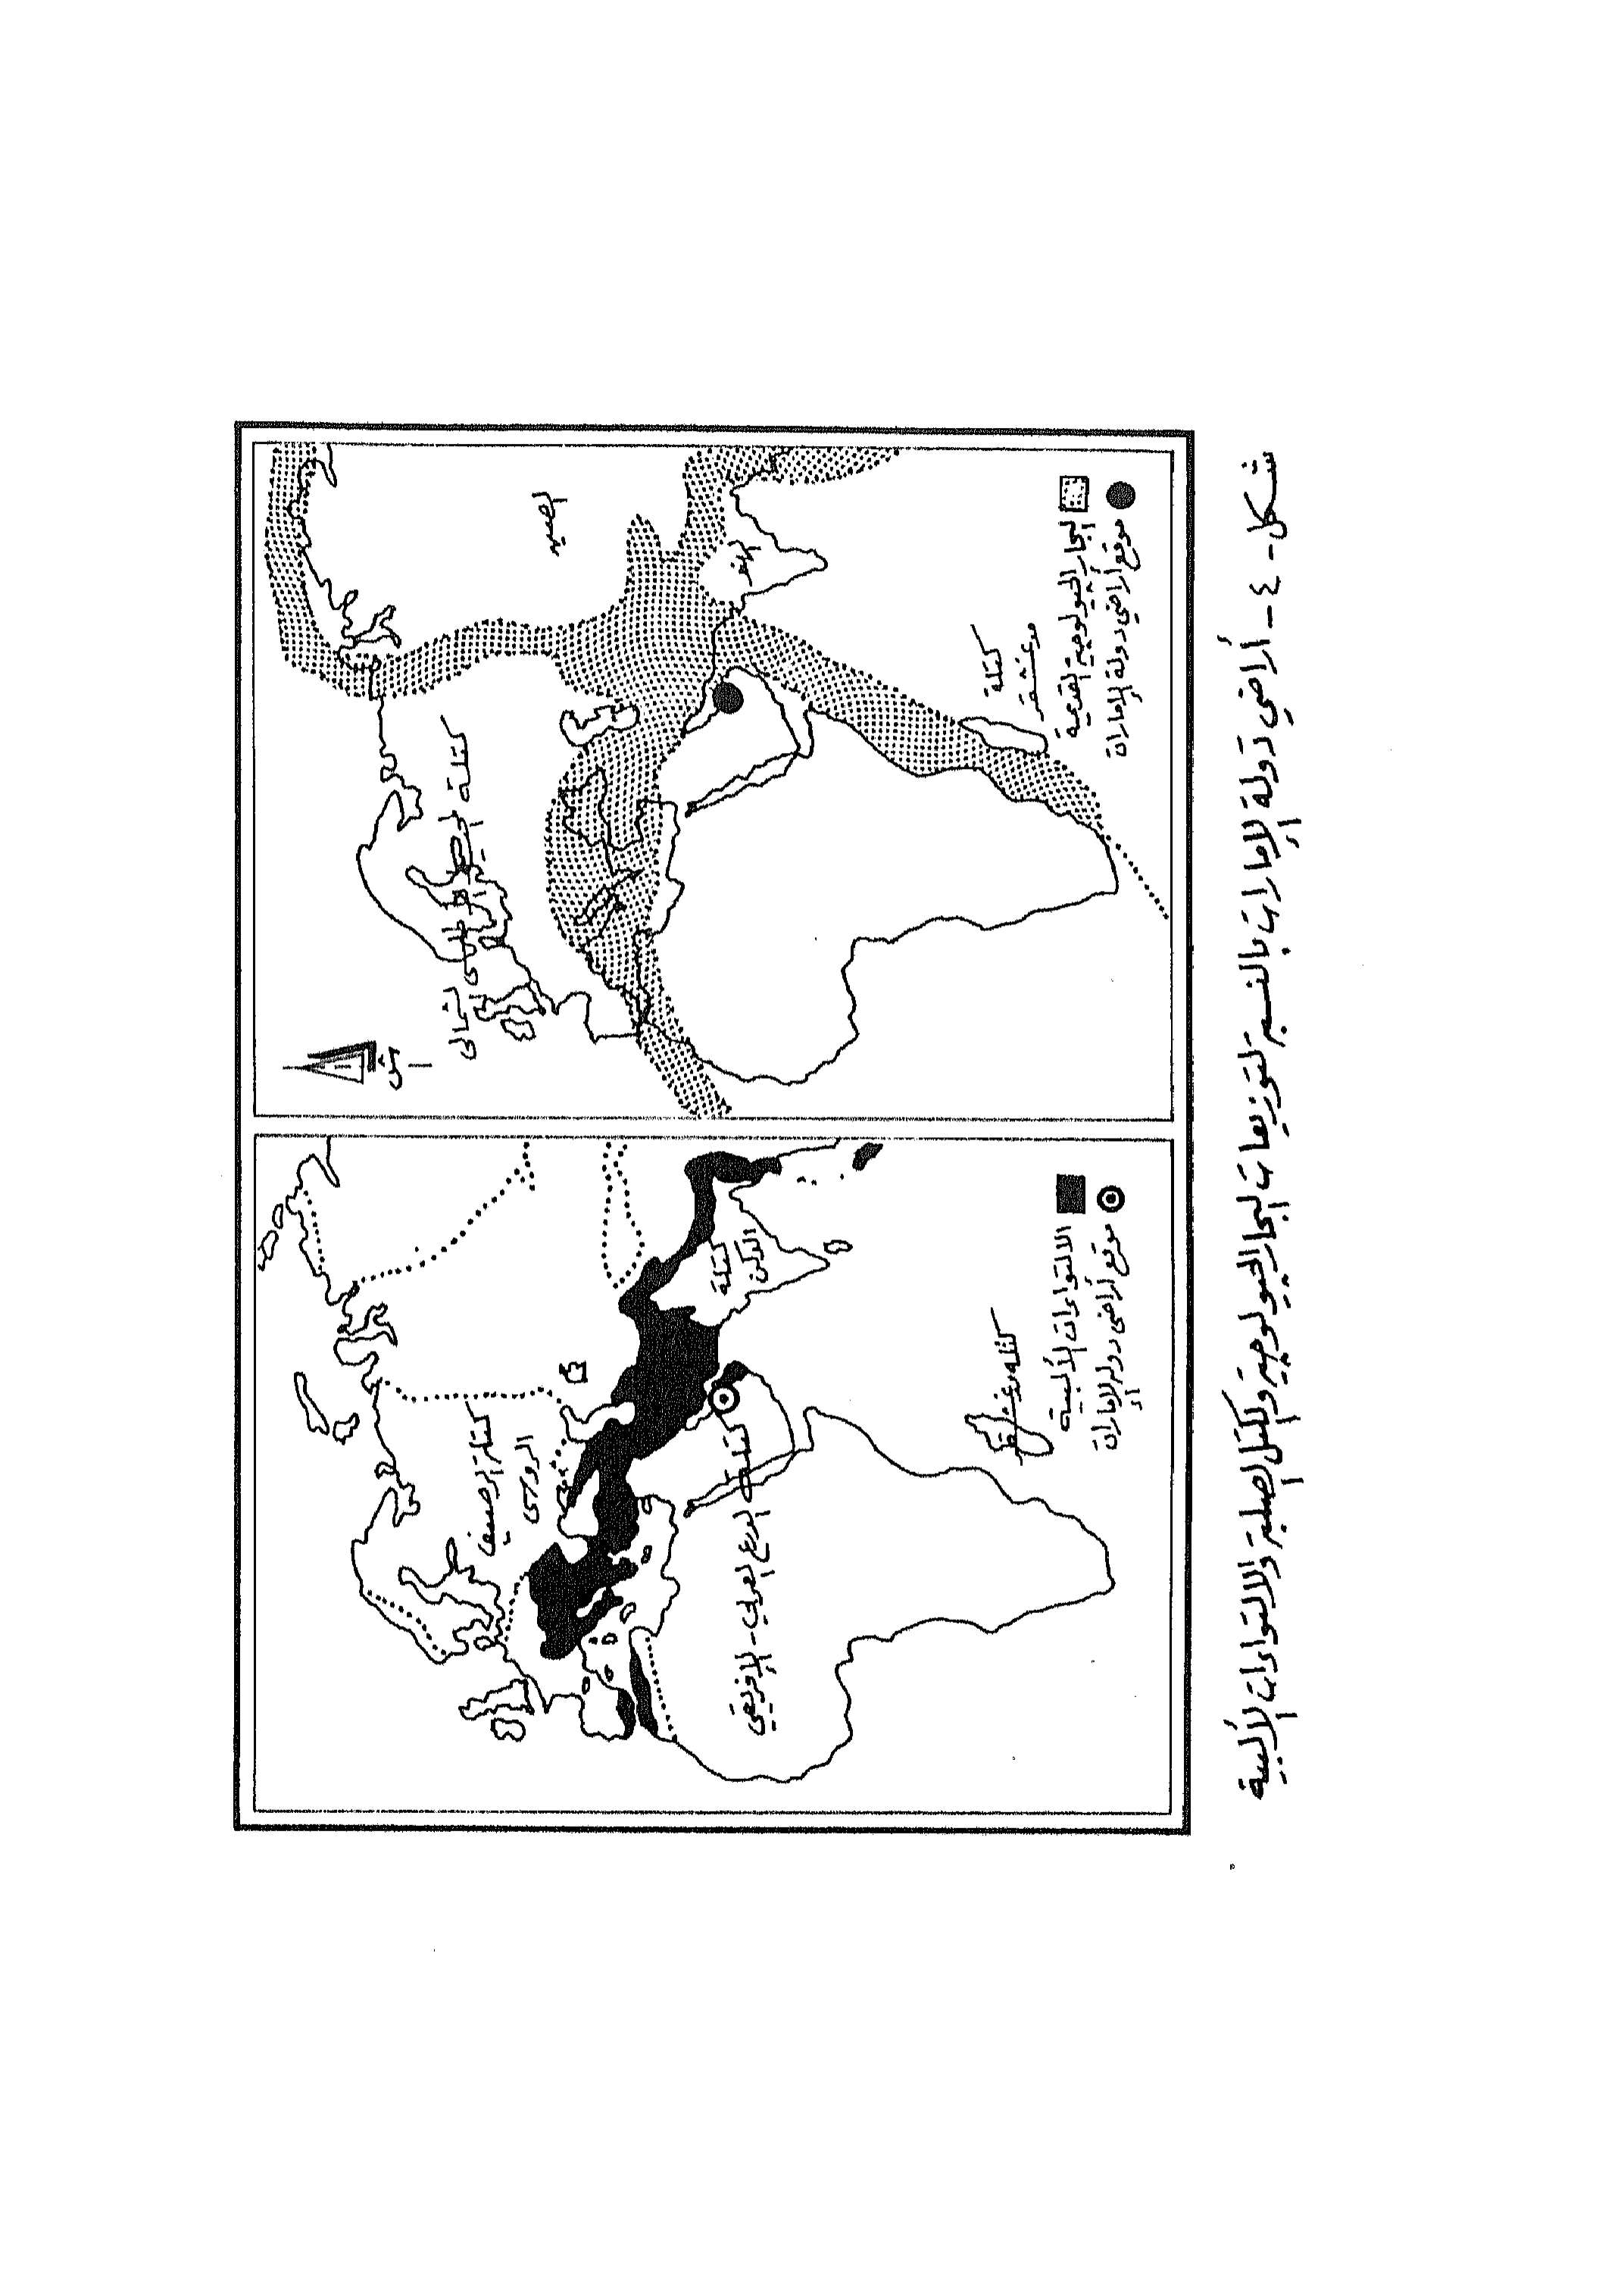 الصين
الهند
كتلة الرصيف الأطلسي الشمالي
كتلة
مدغشقر
البحار الجيولوجية القديمة
موقع أراضي دولة الإمارات
ش
كتلة الرصيف
الروسي
كتلة
الدكن
كتلة الدرع العربي - الإفريقي
كتلة مدغشقر
الالتواءات الألبية
موقع أراضي دولة الإمارات
شكل - ٤ - أراضي دولة الإمارات بالنسبة لتوزيعات البحار الجيولوجية والكتل الصلبة والالتواءات الألبية